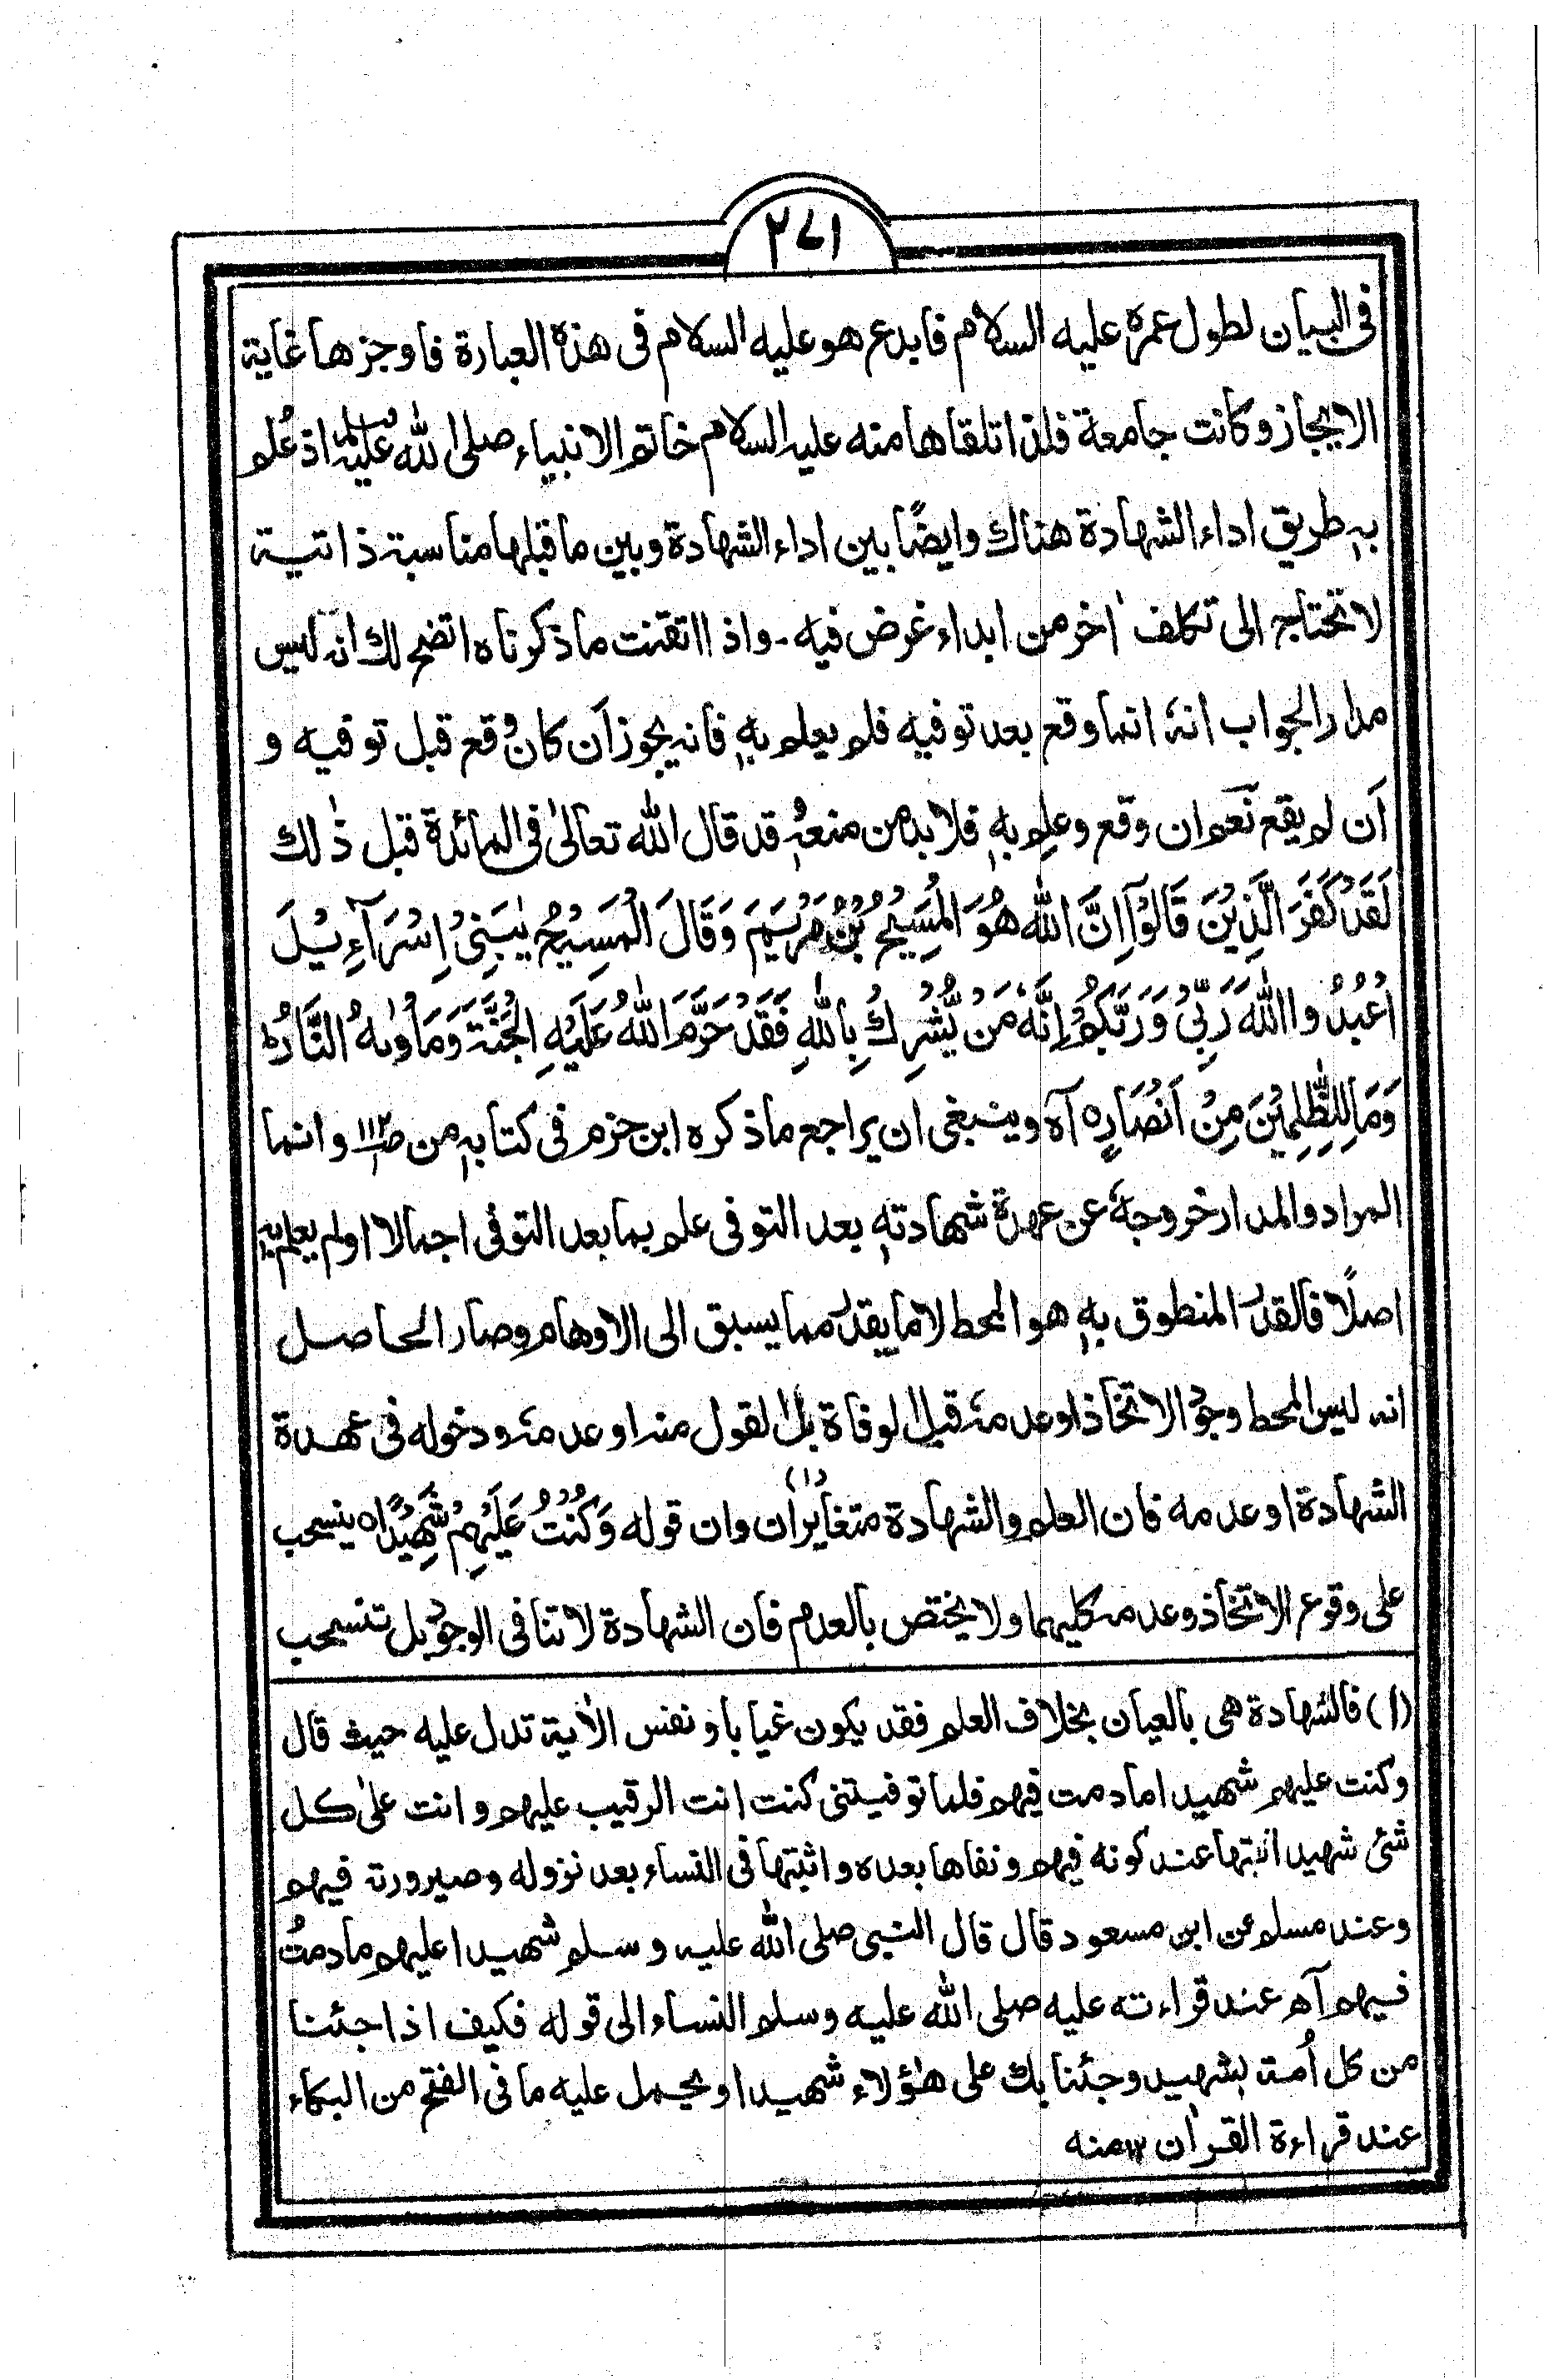 ۲۷۱
فی البیان لطول عمرہ علیه السلام فابدع هو علیه السلام فی هذه العبارة فاوجزها غایة
الایجاز و کانت جامعة فلذا تلقاها منه علیه السلام خاتم الانبیاء صلی الله علیه وسلم اذ عُلم
بهٖ طریق اداء الشهادة هناك وایضًا بین اداء الشهادة وبین ما قبلها مناسبة ذاتیة
لا تحتاج الی تکلف اٰخر من ابداء غرض فیه۔ واذا اتقنت ما ذکرناه اتضح لك انه لیس
مدار الجواب انهٗ انما وقع بعد توفیه فلم یعلم بهٖ فانه یجوز اَن کان وقع قبل توفیه و
اَن لم یقع نَعم ان وقع وعلِم بهٖ فلا بد من منعهٖ قد قال الله تعالیٰ فی المائدة قبل ذٰلك
لَقَدْ كَفَرَ الَّذِیْنَ قَالُوْۤا اِنَّ اللّٰهَ هُوَ الْمَسِیْحُ بْنُ مَرْیَمَ وَقَالَ الْمَسِیْحُ یٰبَنِیْۤ اِسْرَآءِیْلَ
اعْبُدُوا اللّٰهَ رَبِّیْ وَرَبَّكُمْ اِنَّهٗ مَنْ یُّشْرِكْ بِاللّٰهِ فَقَدْ حَرَّمَ اللّٰهُ عَلَیْهِ الْجَنَّةَ وَمَاْوٰىهُ النَّارُ ط
وَمَا لِلظّٰلِمِیْنَ مِنْ اَنْصَارٍ ہ آہ وینبغی ان یراجع ما ذکره ابن حزم فی کتابهٖ من ص ۱۱۲/۱ وانما
المراد والمدار خروجهٗ عن عهدة شهادتهٖ بعد التوفی علم بما بعد التوفی اجمالا اولم یعلم بهٖ
اصلًا فالقدر المنطوق بهٖ هو المحط لا ما یقدر مما یسبق الی الاوهام وصار الحاصل
انه لیس المحط وجود الاتخاذ او عدمه قبل الوفاة بل القول منه او عدمه ودخوله فی عهدة
الشهادة او عدمه فان العلم والشهادة متغایران (۱) وان قوله وَكُنْتُ عَلَیْهِمْ شَهِیْدًا ہ ینسحب
علی وقوع الاتخاذ وعدمه کلیهما ولا یختص بالعدم فان الشهادة لا تنافی الوجود بل تنسحب
(۱) فالشهادة هی بالعیان بخلاف العلم فقد یکون غیابا و نفس الاٰیة تدل علیه حیث قال
وکنت علیهم شهیدا ما دمت فیهم فلما توفیتنی کنت انت الرقیب علیهم وانت علیٰ کل
شئ شهید اثبتها عند کونه فیهم ونفاها بعده واثبتها فی النساء بعد نزوله وصیرورته فیهم
وعند مسلم عن ابن مسعود قال قال النبی صلی الله علیه وسلم شهیدا علیهم ما دمتُ
فیهم آہ عند قراءته علیه صلی الله علیه وسلم النساء الی قوله فکیف اذا جئنا
من کل اُمة بشهید وجئنا بك علی هٰؤلاء شهیدا و یحمل علیه ما فی الفتح من البکاء
عند قراءة القراٰن ۱۲ منه